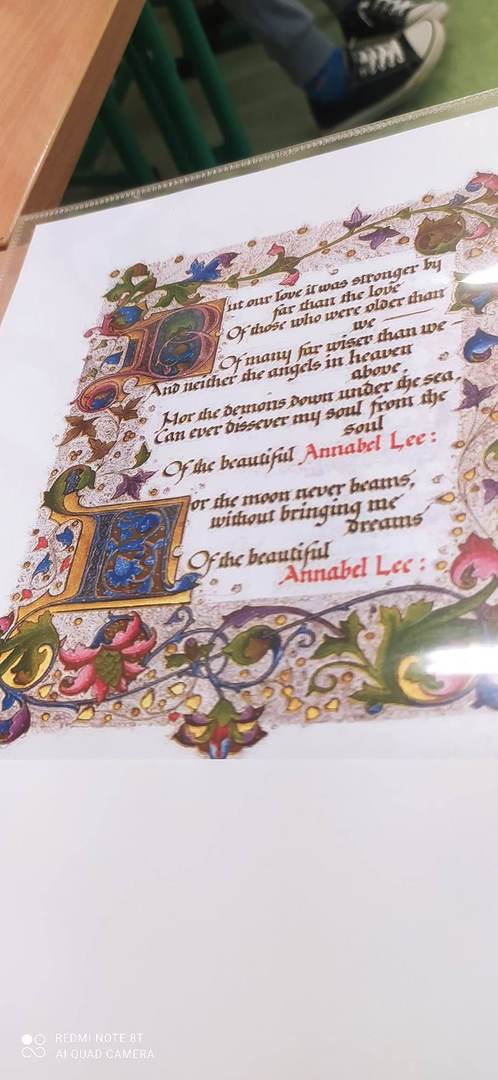 But our love it was stronger by
far than the love
Of those who were older than
we —
Of many far wiser than we —
And neither the angels in heaven
above,
Nor the demons down under the sea,
Can ever dissever my soul from the
soul
Of the beautiful Annabel Lee:
For the moon never beams,
without bringing me
dreams
Of the beautiful
Annabel Lee:
REDMI NOTE 8T
AI QUAD CAMERA